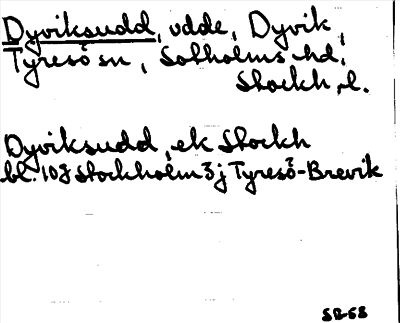 Dyviksudd, udde, Dyvik,
Tyresö sn, Sotholms hd,
Stockh. l.
Dyviksudd, ek Stockh
bl. 10J Stockholm 3j Tyresö-Brevik